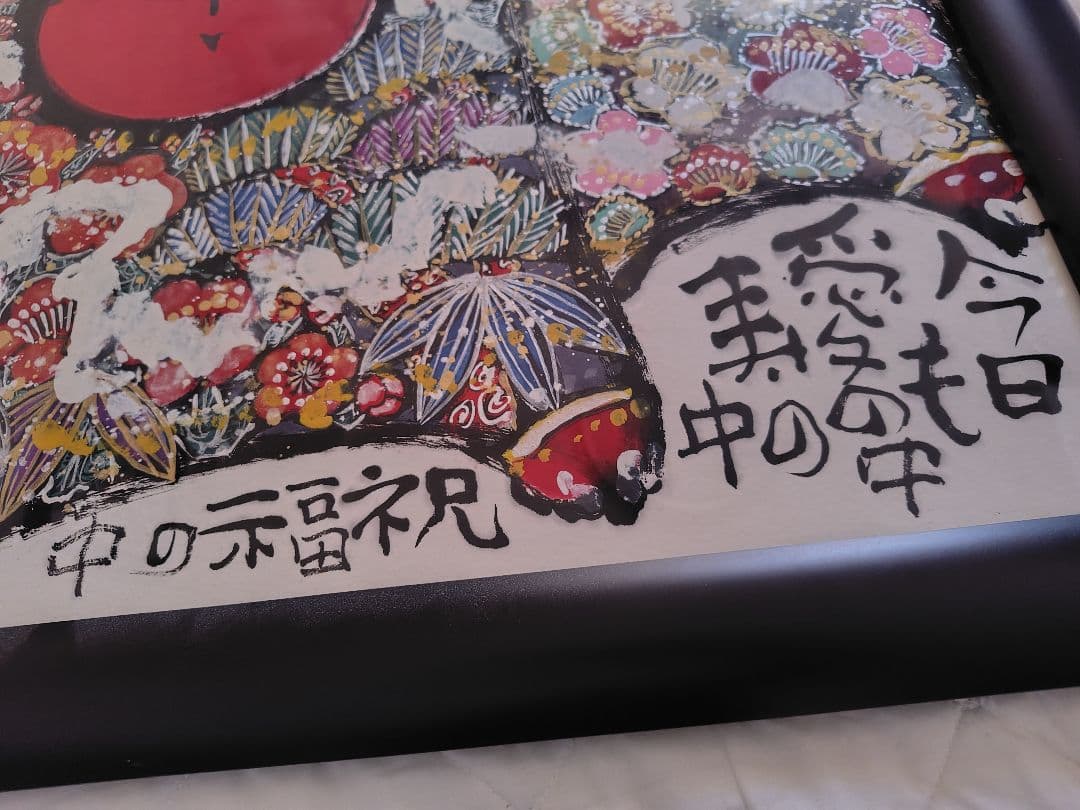 今日も
愛の中
美の中
祝福の中